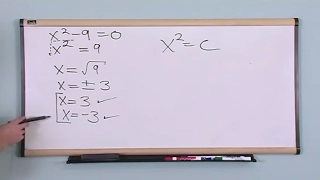 x² - 9 = 0
x² = 9
x = √9
x = ± 3
x = 3 ✓
x = -3 ✓
x² = C